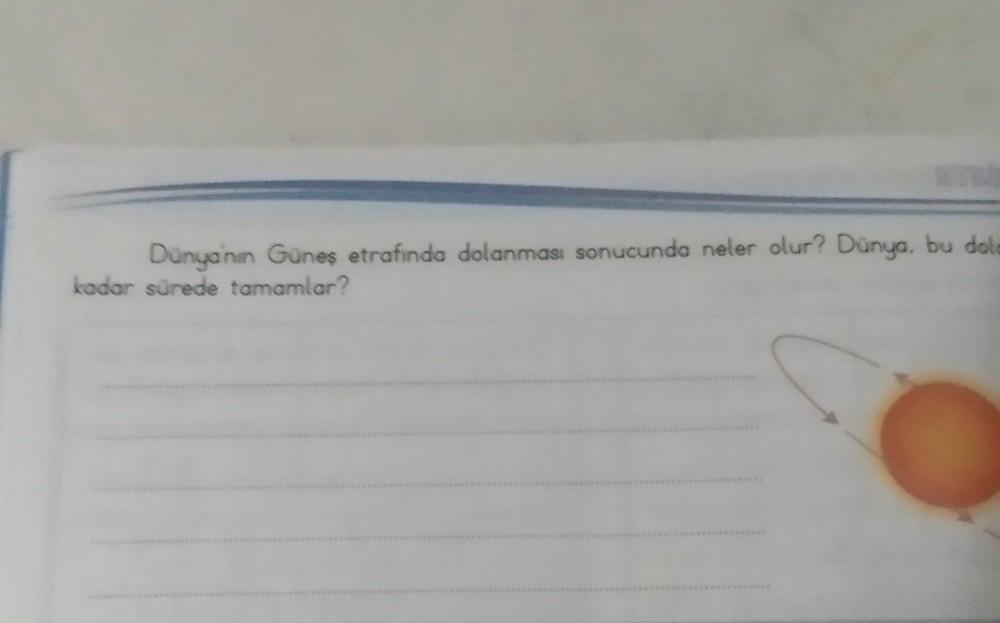 Dünya'nın Güneş etrafında dolanması sonucunda neler olur? Dünya, bu
kadar sürede tamamlar?